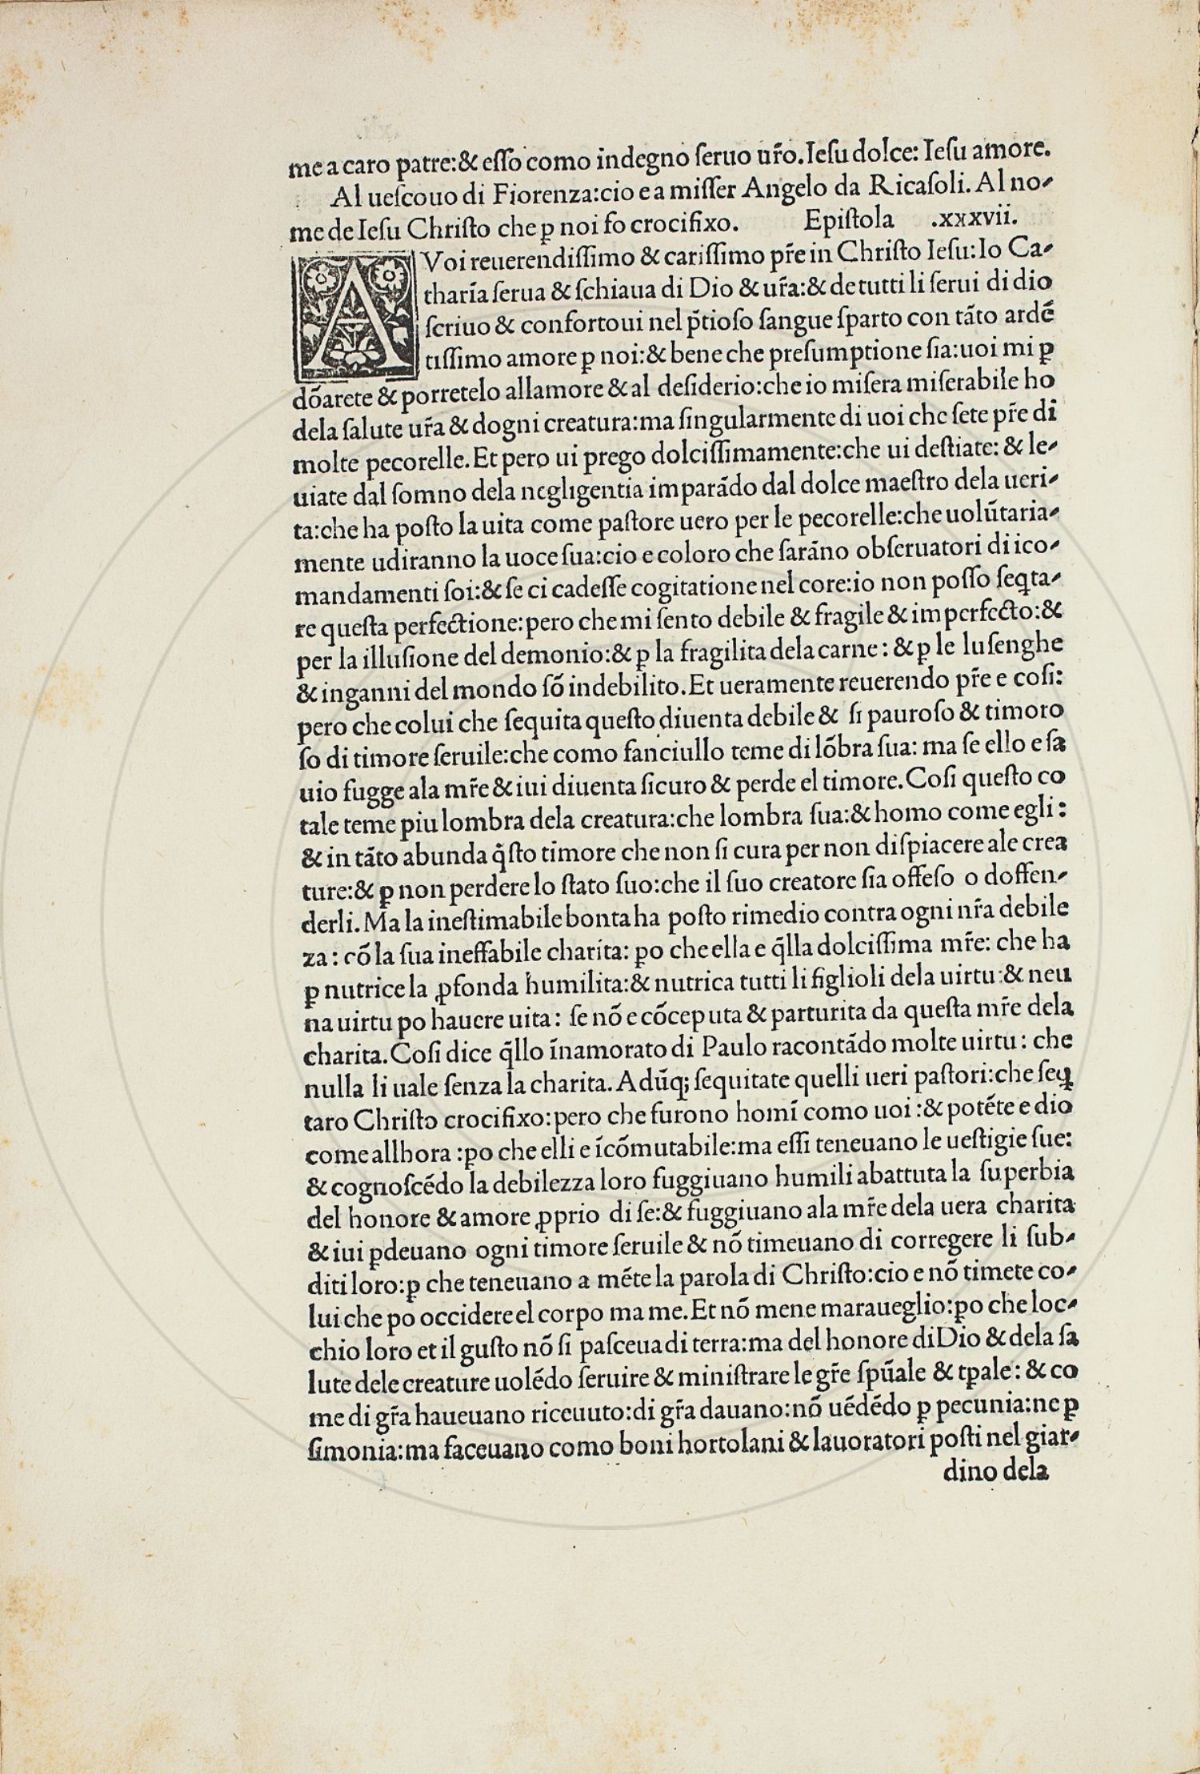 me a caro patre:& eſſo como indegno ſeruo ur̃o.Ieſu dolce: Ieſu amore.
Al ueſcouo di Fiorenza:cio e a miſſer Angelo da Ricaſoli.Al no-
me de Ieſu Chriſto che ꝑ noi fo crocifixo. Epiſtola .xxxvii.
A Voi reuerendiſſimo & cariſſimo pr̃e in Chriſto Ieſu:Io Ca-
tharĩa ſerua & ſchiaua di Dio & ur̃a:& de tutti li ſerui di dio
ſcriuo & confortoui nel p̃tioſo ſangue ſparto con tãto ardẽ
tiſſimo amore ꝑ noi:& bene che preſumptione ſia:uoi mi ꝑ
dõarete & porretelo allamore & al deſiderio:che io miſera miſerabile ho
dela ſalute ur̃a & dogni creatura:ma ſingularmente di uoi che ſete pr̃e di
molte pecorelle.Et pero ui prego dolciſſimamente:che ui deſtiate: & le-
uiate dal ſomno dela negligentia imparãdo dal dolce maeſtro dela ueri-
ta:che ha poſto la uita come paſtore uero per le pecorelle:che uolũtaria-
mente udiranno la uoce ſua:cio e coloro che ſarãno obſeruatori di ico-
mandamenti ſoi:& ſe ci cadeſſe cogitatione nel core:io non poſſo ſeq̃ta-
re queſta perfectione:pero che mi ſento debile & fragile & imperfecto:&
per la illuſione del demonio:& ꝑ la fragilita dela carne: & ꝑ le luſenghe
& inganni del mondo ſõ indebilito.Et ueramente reuerendo pr̃e e coſi:
pero che colui che ſequita queſto diuenta debile & ſi pauroſo & timoro
ſo di timore ſeruile:che como fanciullo teme di lõbra ſua: ma ſe ello e ſa
uio fugge ala mr̃e & iui diuenta ſicuro & perde el timore.Coſi queſto co
tale teme piu lombra dela creatura:che lombra ſua:& homo come egli:
& in tãto abunda q̃ſto timore che non ſi cura per non diſpiacere ale crea
ture:& ꝑ non perdere lo ſtato ſuo:che il ſuo creatore ſia offeſo o doffen-
derli.Ma la ineſtimabile bonta ha poſto rimedio contra ogni nr̃a debile
za: cõ la ſua ineffabile charita: ꝑo che ella e q̃lla dolciſſima mr̃e: che ha
ꝑ nutrice la ꝓfonda humilita:& nutrica tutti li figlioli dela uirtu:& neu
na uirtu po hauere uita: ſe nõ e cõceputa & parturita da queſta mr̃e dela
charita.Coſi dice q̃llo ĩnamorato di Paulo racontãdo molte uirtu: che
nulla li uale ſenza la charita.Adũq; ſequitate quelli ueri paſtori:che ſeq̃
taro Chriſto crocifixo:pero che furono homĩ como uoi:& potẽte e dio
come allhora :po che elli e ĩcõmutabile:ma eſſi teneuano le ueſtigie ſue:
& cognoſcẽdo la debilezza loro fuggiuano humili abattuta la ſuperbia
del honore & amore ꝓprio di ſe:& fuggiuano ala mr̃e dela uera charita
& iui ꝑdeuano ogni timore ſeruile & nõ timeuano di corregere li ſub-
diti loro:ꝑ che teneuano a mẽte la parola di Chriſto:cio e nõ timete co-
lui che po occidere el corpo ma me.Et nõ mene maraueglio:po che loc-
chio loro et il guſto nõ ſi paſceua di terra:ma del honore di Dio & dela ſa
lute dele creature uolẽdo ſeruire & miniſtrare le gr̃e ſpũale & tꝑale: & co
me di gr̃a haueuano riceuuto:di gr̃a dauano:nõ uẽdẽdo ꝑ pecunia:ne ꝑ
ſimonia:ma faceuano como boni hortolani & lauoratori poſti nel giar-
dino dela